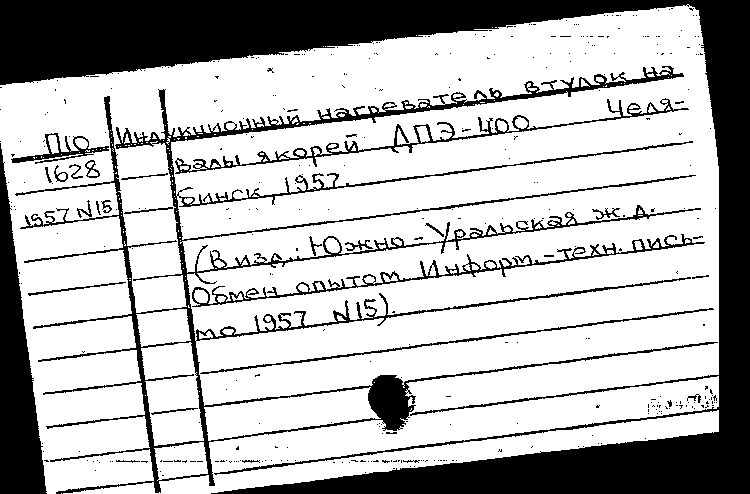 П10 Индукционный нагреватель втулок на
1628 валы якорей ДПЭ-400. Челя-
1957 N15 бинск, 1957.
(В изд.: Южно-Уральская ж.д.
Обмен опытом. Информ.-техн. пись-
мо 1957 N15).